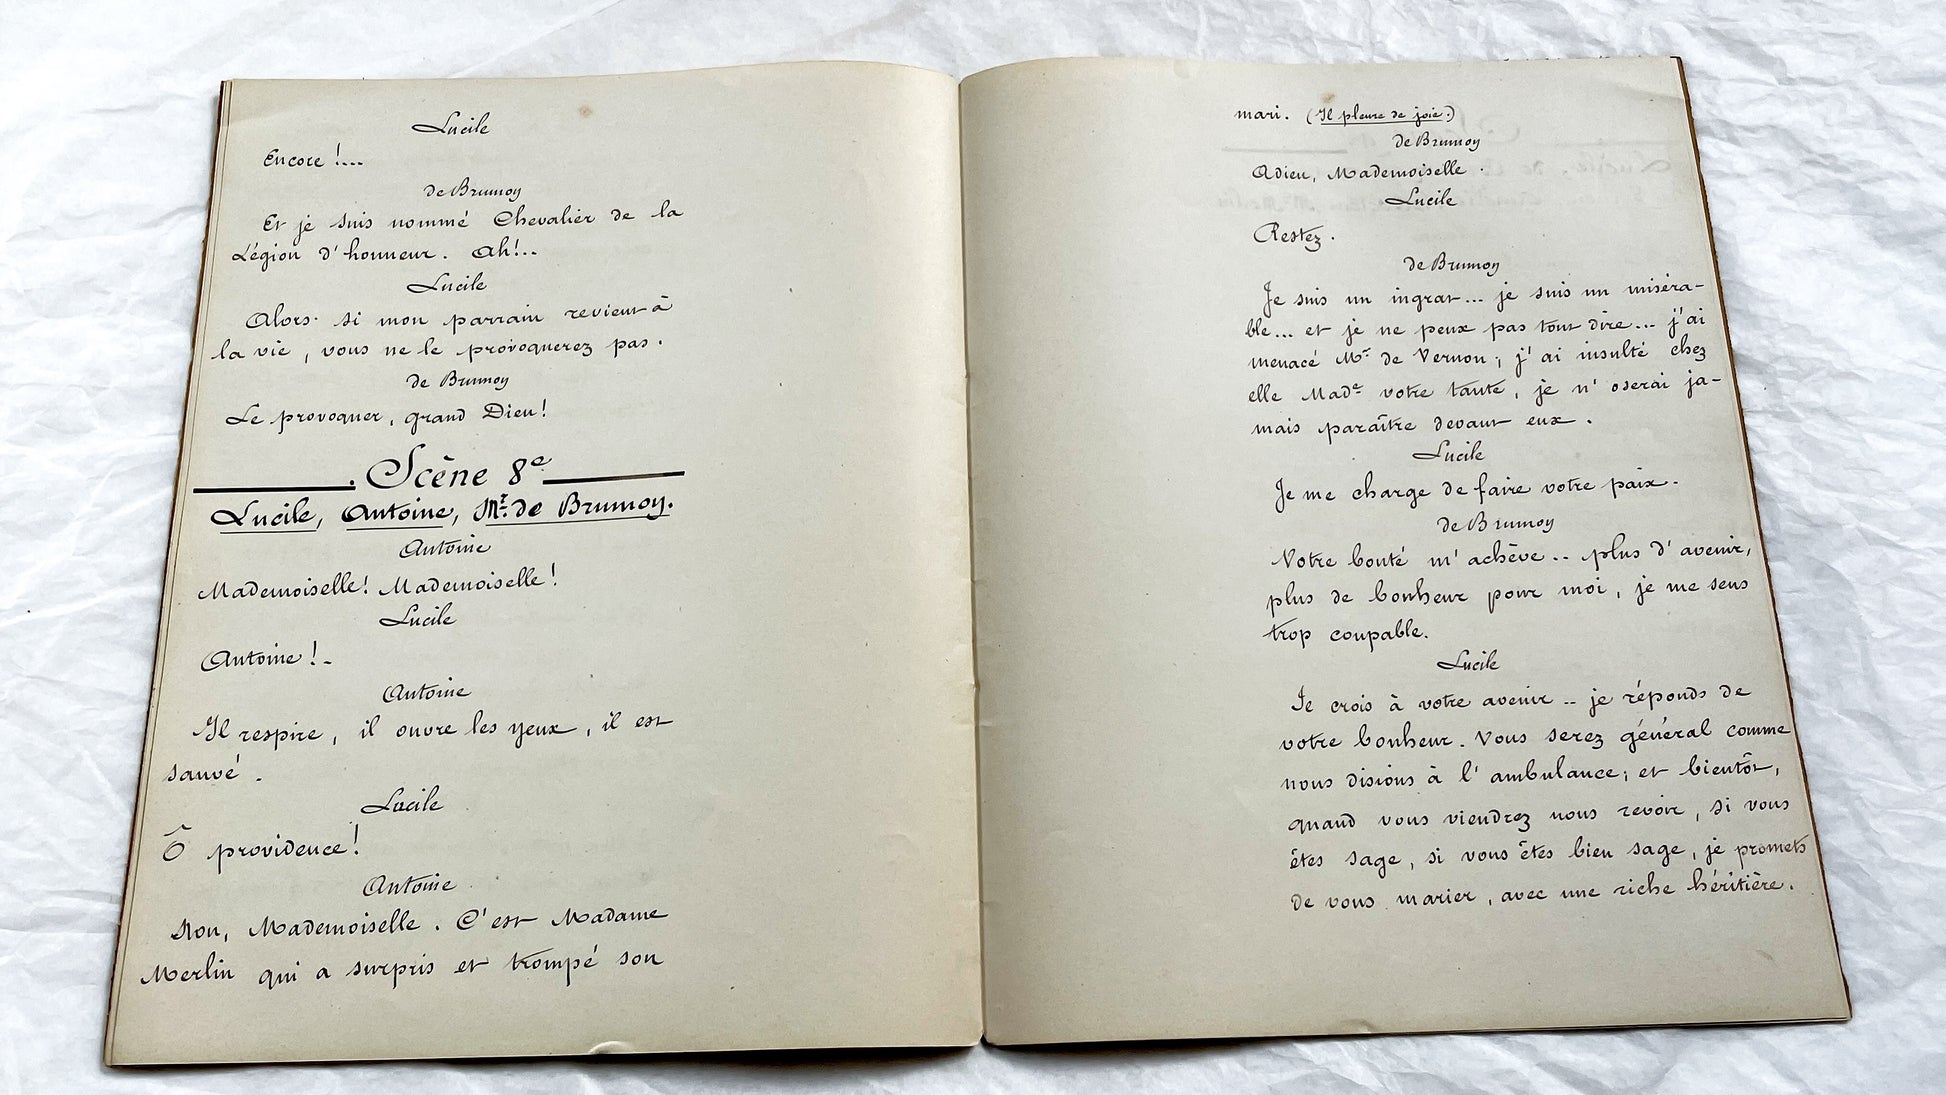 Lucile
Encore !...
de Brumoy
Et je suis nommé Chevalier de la
Légion d'honneur. Ah!..
Lucile
Alors si mon parrain revient à
la vie, vous ne le provoquerez pas.
de Brumoy
Le provoquer, grand Dieu!
Scène 8e
Lucile, Antoine, Mr. de Brumoy.
Antoine
Mademoiselle! Mademoiselle!
Lucile
Antoine!..
Antoine
Il respire, il ouvre les yeux, il est
sauvé.
Lucile
Ô providence!
Antoine
Non, Mademoiselle. C'est Madame
Merlin qui a surpris et trompé son
mari. (Il pleure de joie.)
de Brumoy
Adieu, Mademoiselle.
Lucile
Restez.
de Brumoy
Je suis un ingrat... je suis un miséra-
ble... et je ne peux pas tout dire... j'ai
menacé Mr de Vernon; j'ai insulté chez
elle Made votre tante, je n'oserai ja-
mais paraître devant eux.
Lucile
Je me charge de faire votre paix.
de Brumoy
Votre bonté m'achève.. plus d'avenir,
plus de bonheur pour moi, je me sens
trop coupable.
Lucile
Je crois à votre avenir.. je réponds de
votre bonheur. Vous serez général comme
nous disions à l'ambulance; et bientôt,
quand vous viendrez nous revoir, si vous
êtes sage, si vous êtes bien sage, je promets
de vous marier, avec une riche héritière.